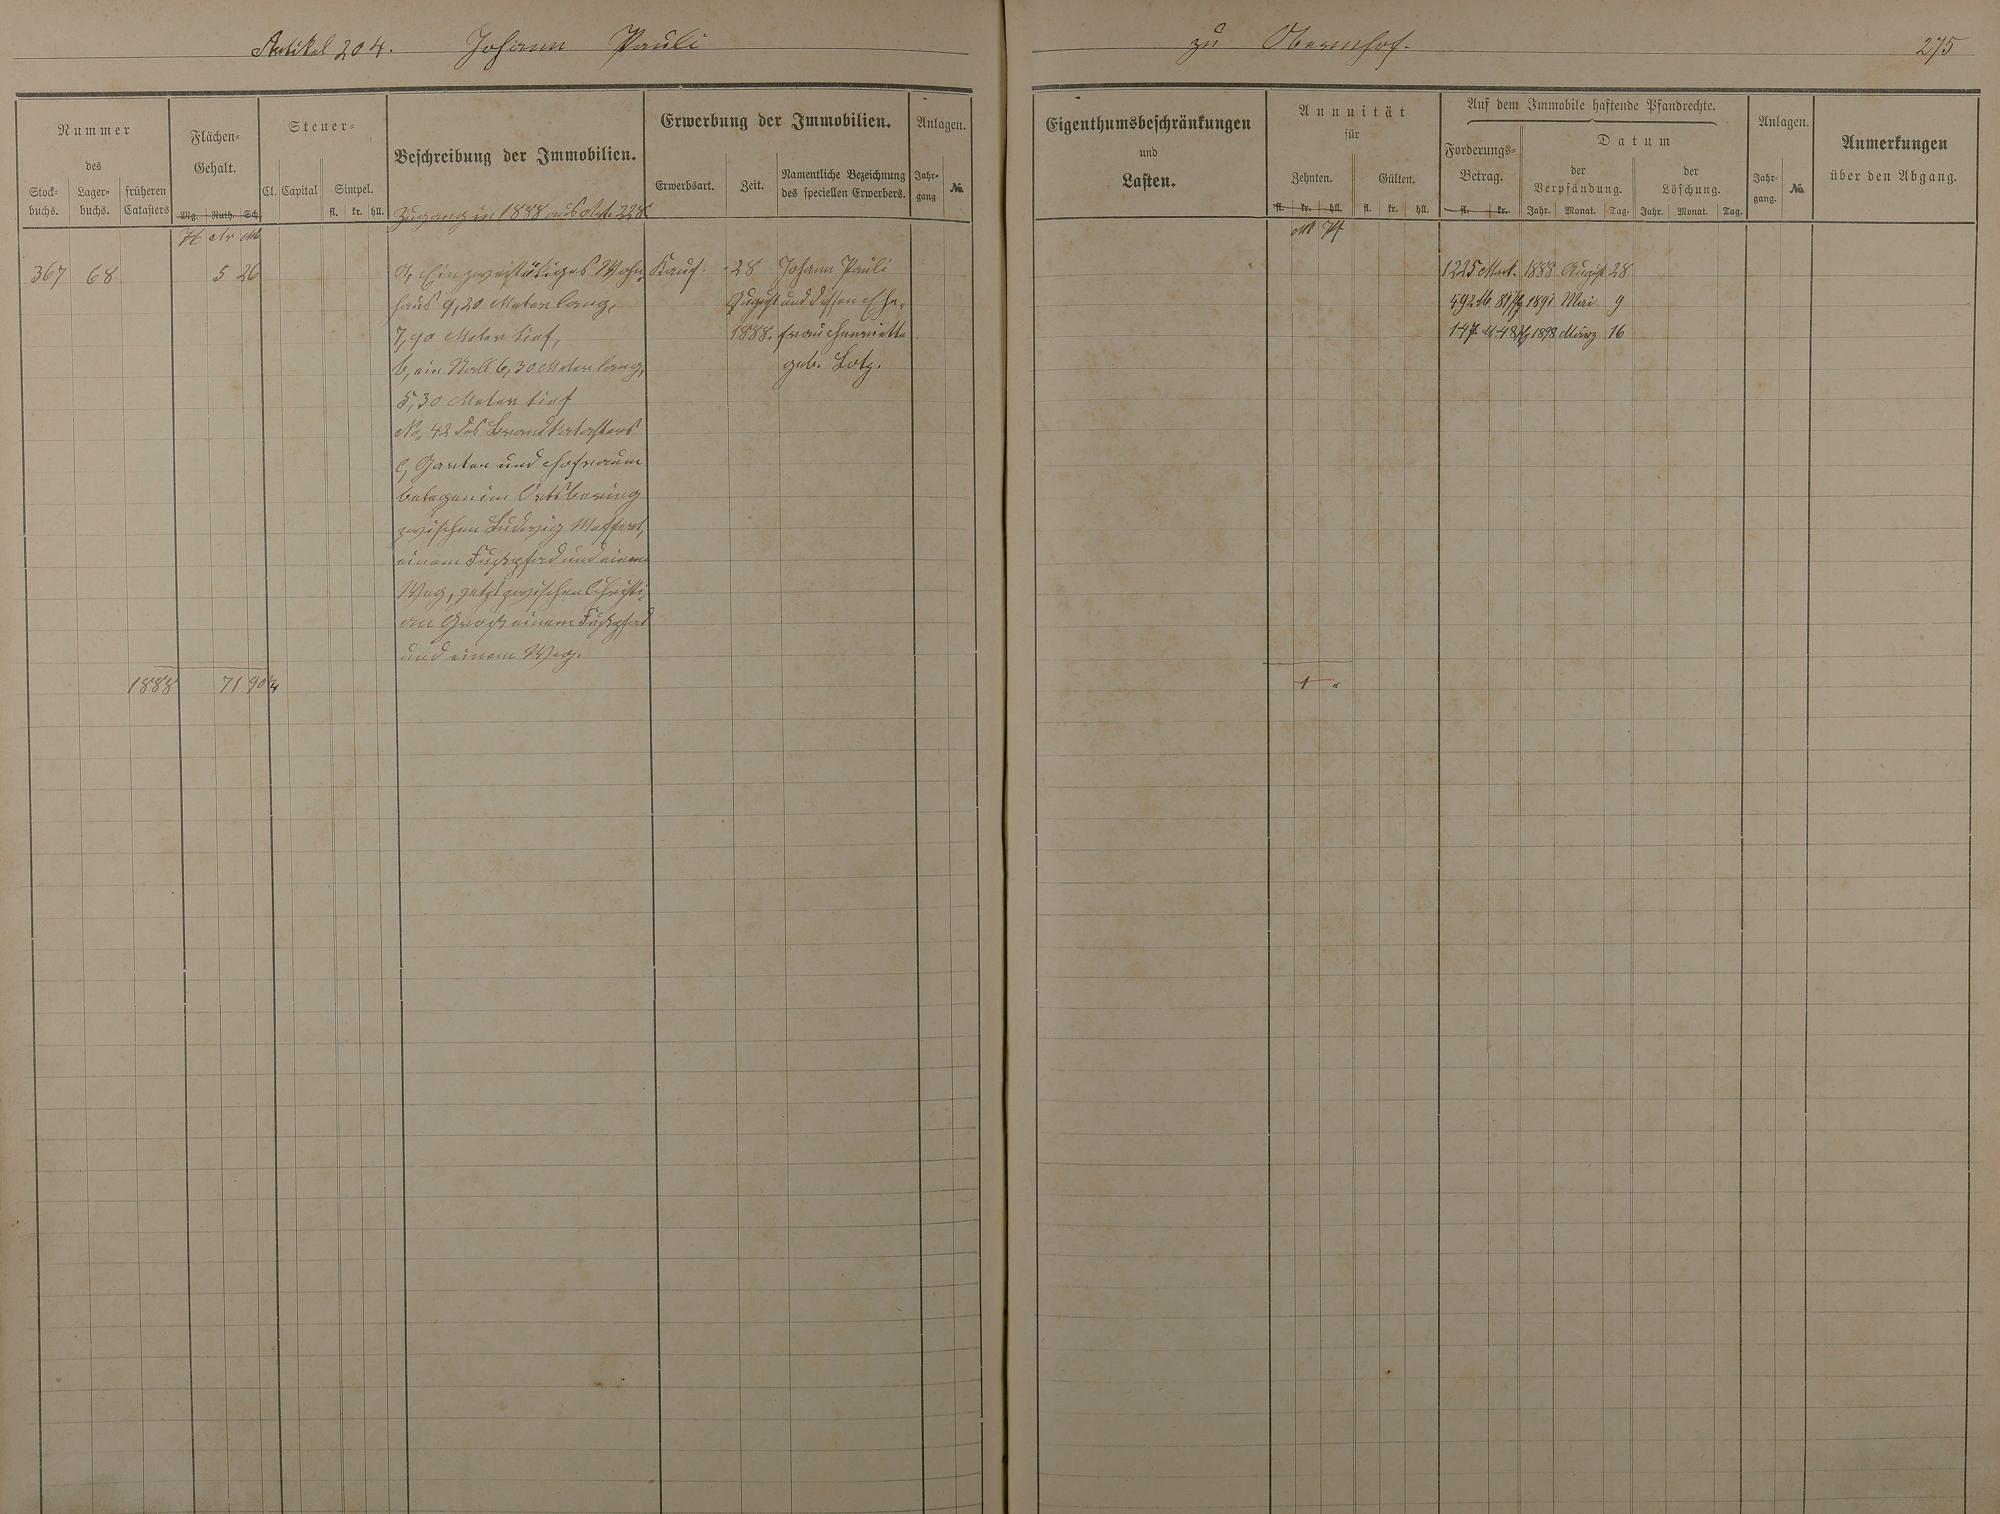 Artikel 204. Johann Pauli
zu Obernhof. 275
Nummer
des
Stock-
buchs.
Lager-
buchs.
früheren
Catasters
Flächen-
Gehalt.
Mg. Ruth. Sch.
Steuer-
Cl. Capital Simpel.
fl. kr. hll.
Beschreibung der Immobilien.
Erwerbung der Immobilien.
Erwerbsart. Zeit.
Namentliche Bezeichnung
des speciellen Erwerbers.
Anlagen.
Jahr-
gang
No.
Zugang in 1888 aus Art. 228
H Ar M
367 68 5 26
a, Ein zweistöckiges Wohn-
haus 9,20 Meter lang,
7,90 Meter tief,
b, ein Stall 6,30 Meter lang,
5,30 Meter tief
No. 42 des Brandkatasters
c, Garten und Hofraum
belegen im Ortsbering
zwischen Ludwig
einem Fußpfad und einem
Weg, jetzt zwischen Christi-
an Groß einem Fußpfad
und einem Weg.
Kauf.
28
August
1888.
Johann Pauli
und dessen Ehe-
frau Henriette
geb. Lotz.
1888 71 90
Eigenthumsbeschränkungen
und
Lasten.
Annuität
für
Zehnten. Gülten.
fl. kr. hll. fl. kr. hll.
Auf dem Immobile haftende Pfandrechte.
Forderungs-
Betrag.
fl. kr.
Datum
der
Verpfändung.
Jahr. Monat. Tag.
der
Löschung.
Jahr. Monat. Tag.
Anlagen.
Jahr-
gang.
No.
Anmerkungen
über den Abgang.
M Pf
1225 Mark. 1888 August 28
492 M 81 Pf 1891 Mai 9
147 M 48 Pf 1898 März 16
1